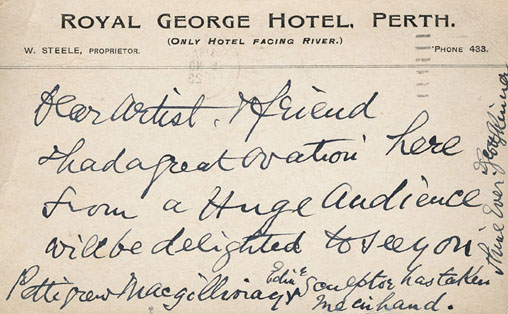 ROYAL GEORGE HOTEL, PERTH.
(ONLY HOTEL FACING RIVER.)
W. STEELE, PROPRIETOR. 'PHONE 433.
Dear Artist, & friend
I had a great ovation here
from a Huge Audience
will be delighted to see you
Pittigrew Macgillivray Sculptor has taken
me in hand.
Thine Ever Scott Skinner